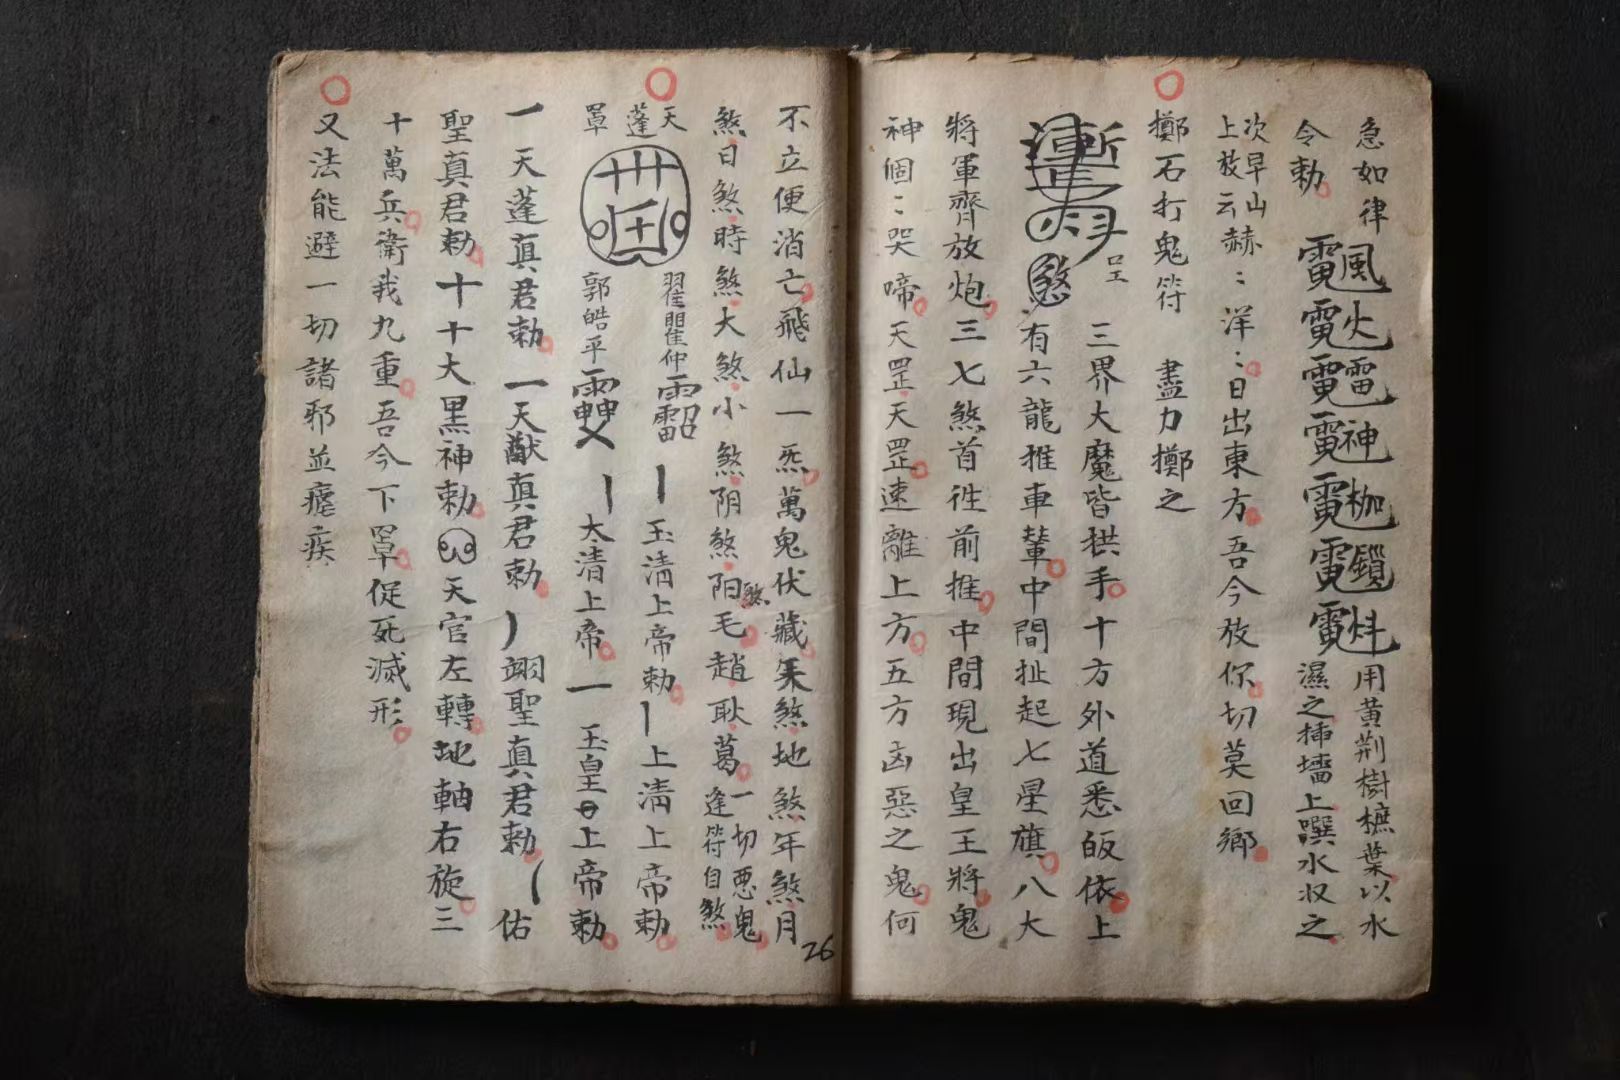 急如律
令勅
風火雷神枷鎖
用黄荆樹樜葉以水
濕之揷墻上噀水収之
次早山赫︰洋︰日出東方吾今放你切莫回鄉
上放云
擲石打鬼符 盡力擲之
煞
三界大魔皆拱手十方外道悉皈依上
有六龍推車輦中間扯起七星旗八大
將軍齊放炮三七煞首徃前推中間現出皇王將鬼
神個︰哭啼天罡天罡速離上方五方凶惡之鬼何
不立便消亡飛仙一炁萬鬼伏藏
煞地煞年煞月
煞日煞時煞大煞小煞阴煞阳煞毛趙耿葛一切惡鬼
逢符自煞
天蓬罩
翟 仲 玉清上帝勅 上清上帝勅
郭皓平 太清上帝 一 玉皇 上帝勅
一天蓬真君勅一天猷真君勅 翊聖真君勅 佑
聖真君勅十十大黑神勅 天官左轉地軸右旋三
十萬兵衛我九重吾今下罩促死滅形
又法能避一切諸邪並瘧疾
26